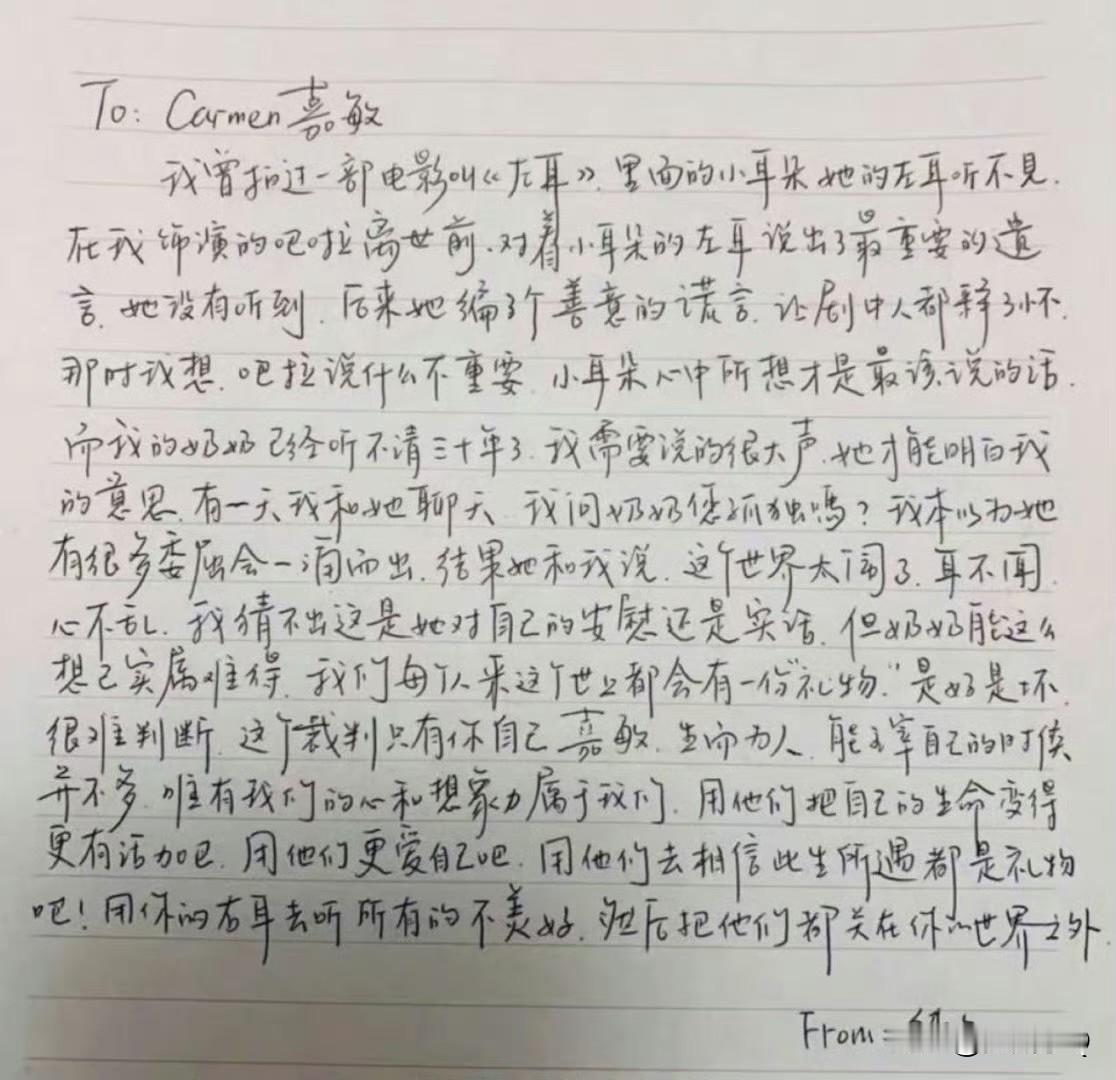 To: Carmen嘉敏
我曾拍过一部电影叫《左耳》.里面的小耳朵她的左耳听不見.
在我饰演的吧啦离世前.对着小耳朵的左耳说出了最重要的遗
言.她没有听到.后来她编了个善意的谎言.让剧中人都释了怀.
那时我想.吧拉说什么不重要.小耳朵心中所想才是最该说的话.
而我的奶奶已经听不清三十年了.我需要说的很大声.她才能明白我
的意思.有一天我和她聊天.我问奶奶您孤独嗎?我本以为她
有很多委屈会一涌而出.结果她和我说.这个世界太闹了.耳不闻.
心不乱.我猜不出这是她对自己的安慰还是实话.但奶奶能这么
想已实属难得.我们每个人来这个世上都会有一份"礼物."是好是坏.
很难判断.这个裁判只有你自己嘉敏.生而为人.能主宰自己的时候
并不多.唯有我们的心和想象力属于我们.用他们把自己的生命变得
更有活力吧.用他们更爱自己吧.用他们去相信此生所遇都是礼物
吧!用你的右耳去听所有的不美好.然后把他们都关在你的世界之外.
From: